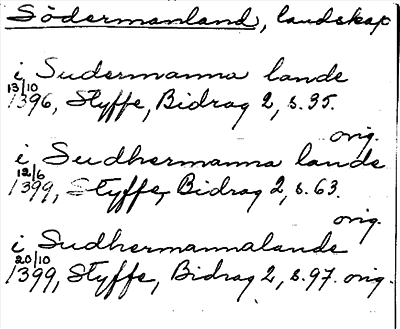 Södermanland, landskap
i Sudermanna lande
13/10
1396, Styffe, Bidrag 2, s. 35.
orig.
i Sudhermanna lande
12/6
1399, Styffe, Bidrag 2, s. 63.
orig.
i Sudhermannalande
20/10
1399, Styffe, Bidrag 2, s. 97. orig.